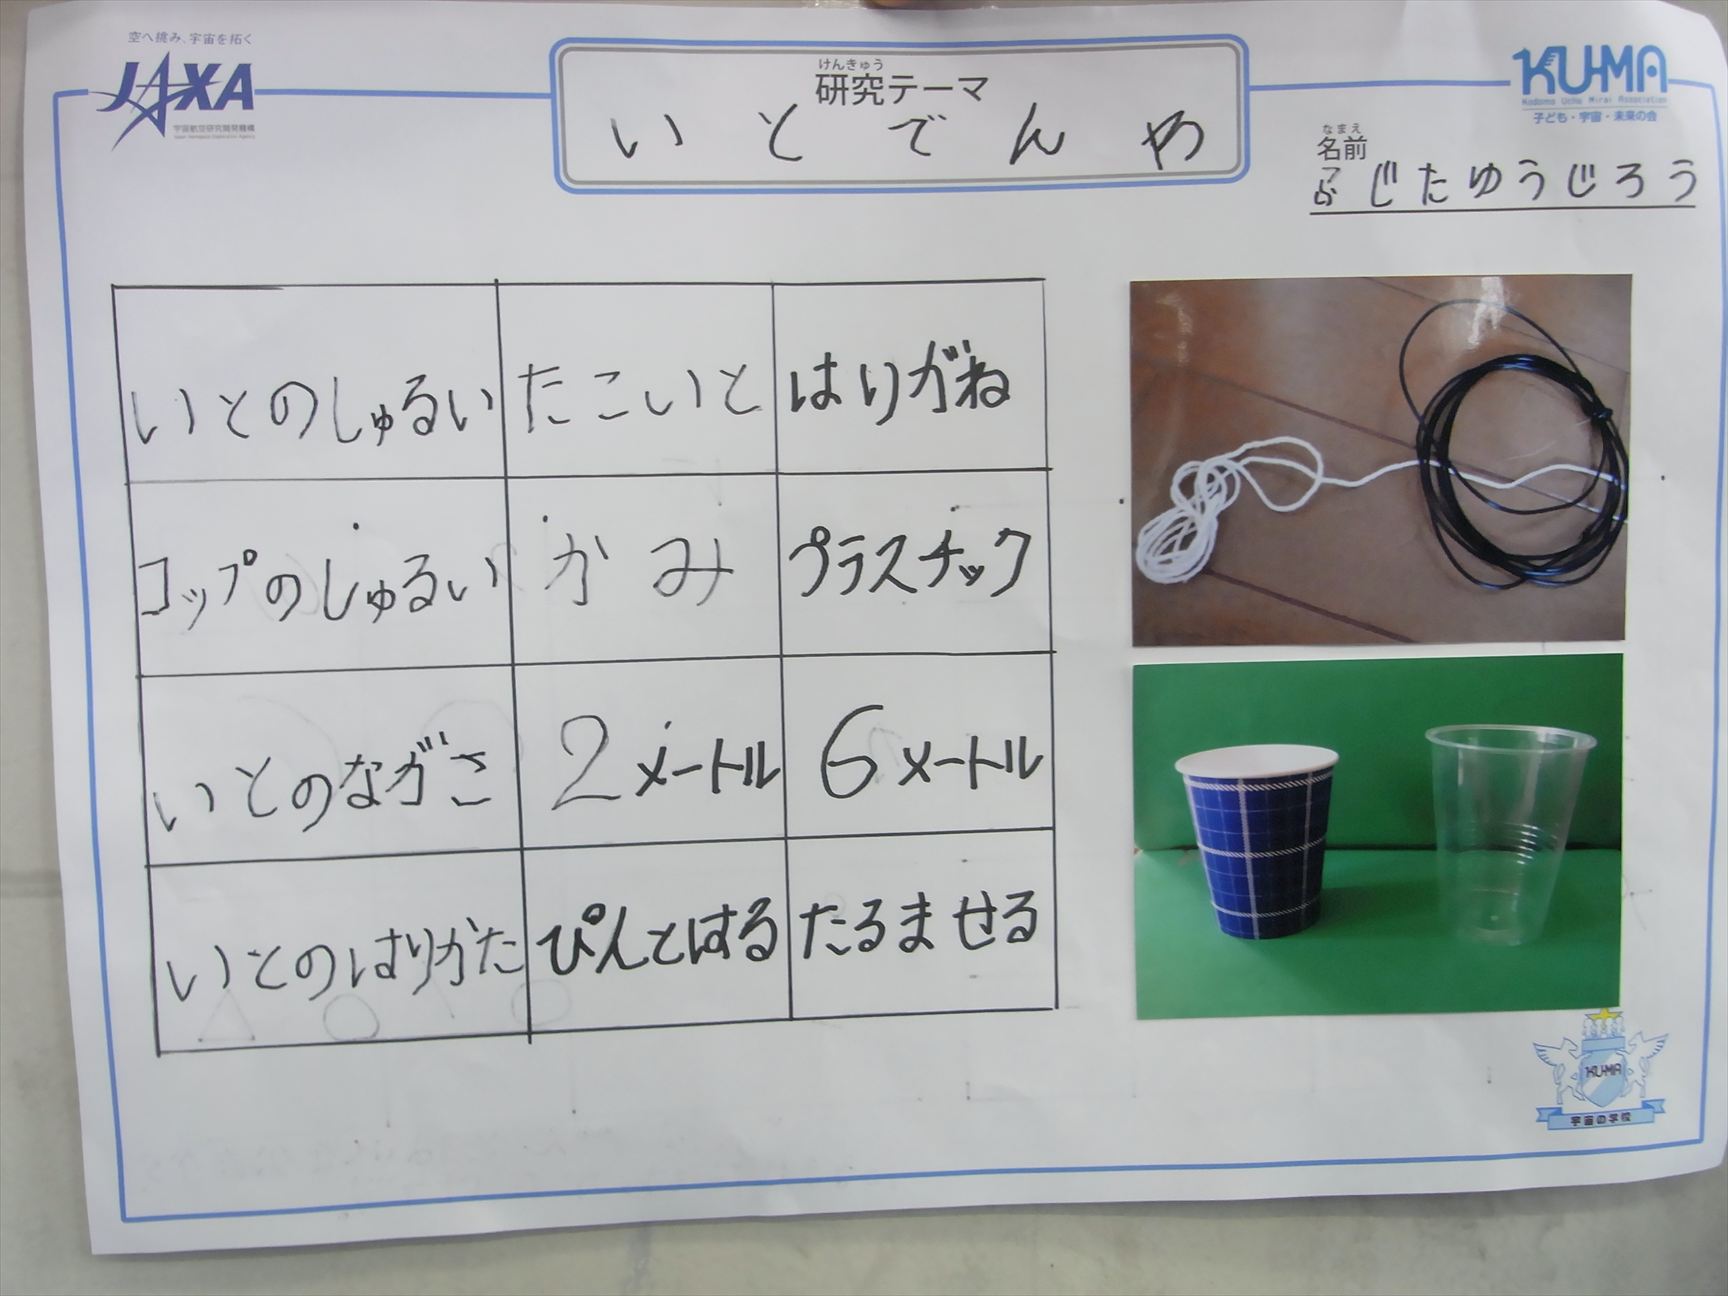 空へ挑み、宇宙を拓く
JAXA
宇宙航空研究開発機構
Japan Aerospace Exploration Agency
けんきゅう
研究テーマ
いとでんわ
KU-MA
Kodomo Uchu Mirai Association
子ども・宇宙・未来の会
なまえ
名前
ふじたゆうじろう
いとのしゅるい たこいと はりがね
コップのしゅるい かみ プラスチック
いとのながさ 2メートル 6メートル
いとのはりかた ぴんとはる たるませる
KU-MA
宇宙の学校